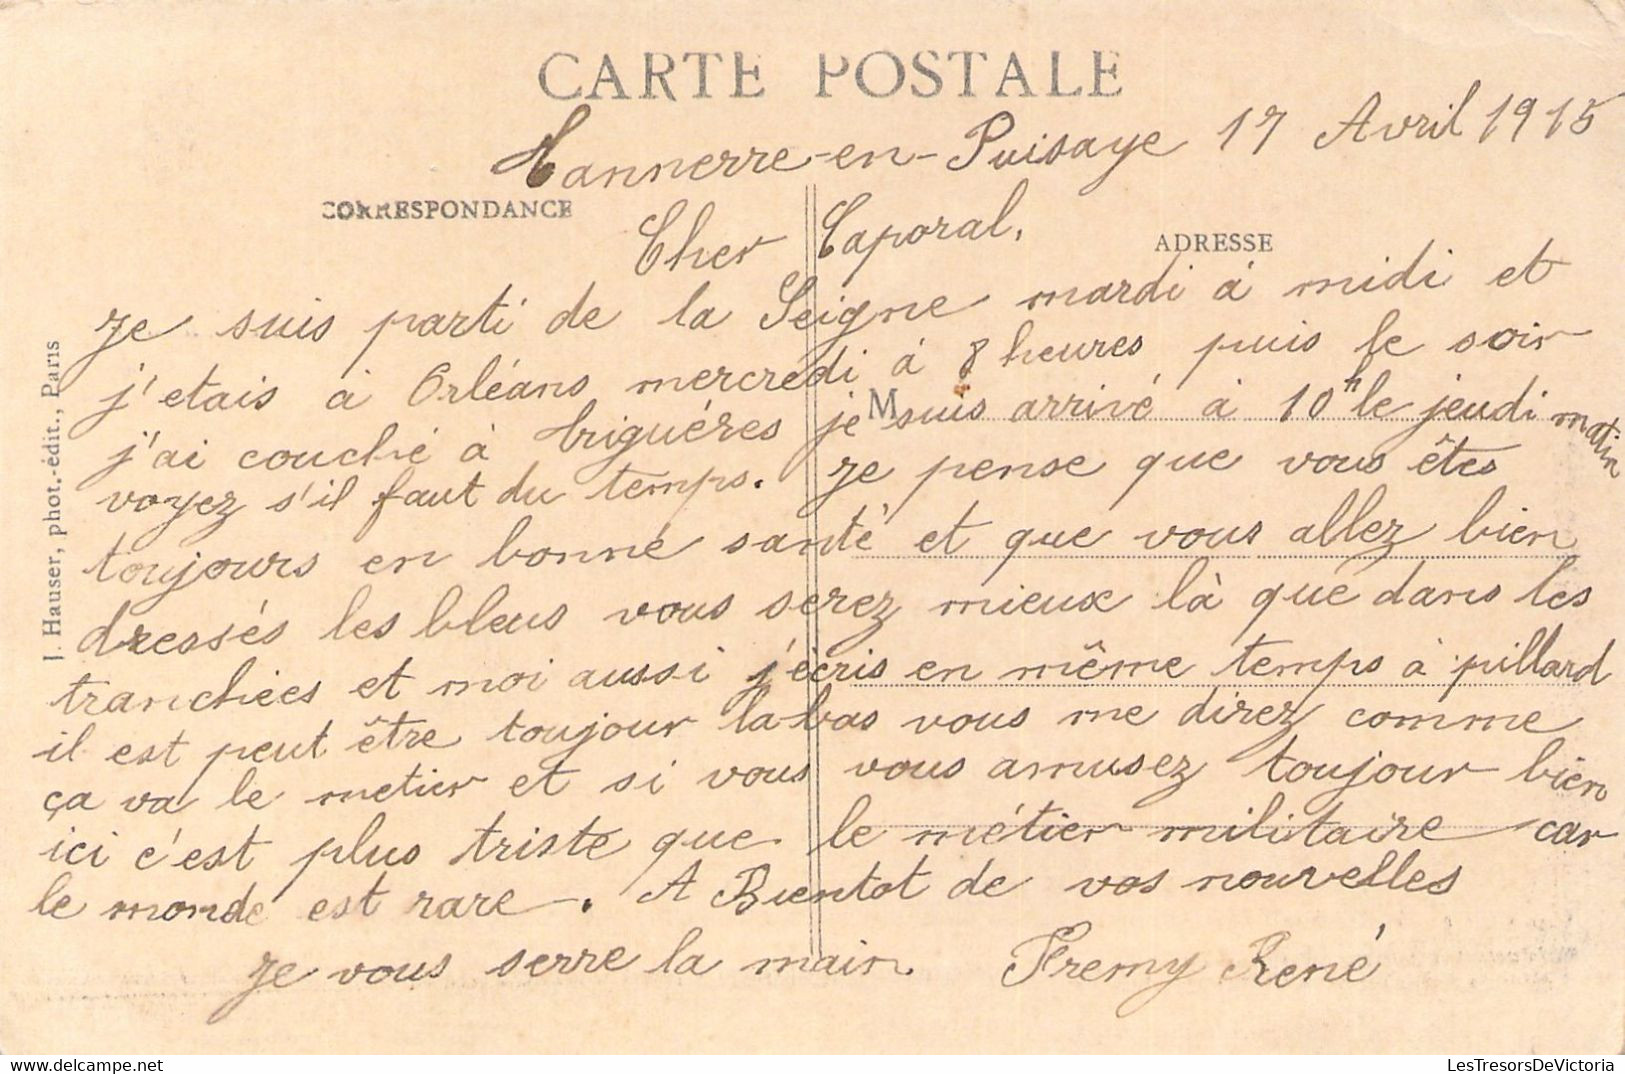 CARTE POSTALE
Tannerre-en-Puisaye 17 Avril 1915
CORRESPONDANCE
ADRESSE
Cher Caporal,
Je suis parti de la Seigne mardi à midi et
j'etais à Orléans mercredi à 8 heures puis le soir
j'ai couché à briguéres je suis arrivé à 10h le jeudi matin
M
voyez s'il faut du temps. Je pense que vous êtes
toujours en bonne santé et que vous allez bien
dressés les bleus vous serez mieux là que dans les
tranchées et moi aussi j'écris en même temps à pillard
il est peut être toujour la-bas vous me direz comme
ça va le metier et si vous vous amusez toujour bien
ici c'est plus triste que le métier militaire car
le monde est rare. A Bientot de vos nouvelles
Je vous serre la main. Fremy René
J. Hauser, phot.-édit., Paris
LesTresorsDeVictoria